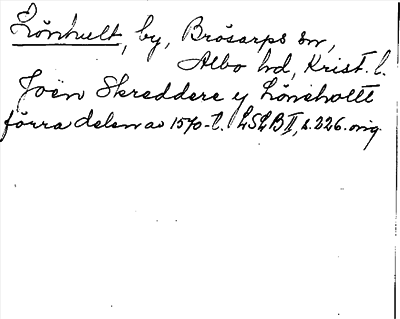 Lönhult, by, Brösarps sn,
Albo hd, Krist. l.
Joen Skreddere y Löneholtt
förra delen av 1570-t. LSLB II, s. 226. orig.